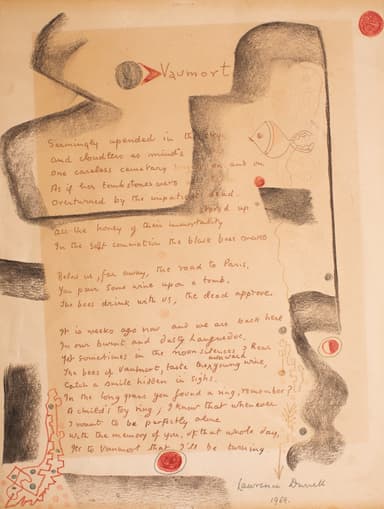 Vaumort
Seemingly upended in the sky,
and cloudless as minds
one careless cemetary on and on
As if her tombstones were
Overturned by the impatient dead.
stored up
all the honey of their immortality
In the soft commotion the black bees make
Below us, far away, the road to Paris.
You pour some wine upon a tomb.
The bees drink with us, the dead approve.
It is weeks ago now and we are back here
In our burnt and dusty Languedoc,
Yet sometimes in the noon-silences I hear
The bees of Vaumort, taste the young wine,
Catch a smile hidden in sighs.
In the long grass you found a ring, remember?
A child's toy ring; I know that whenever
I want to be perfectly alone
With the memory of you, of that whole day,
It's to Vaumort that I'll be turning.
Lawrence Durrell
1969.